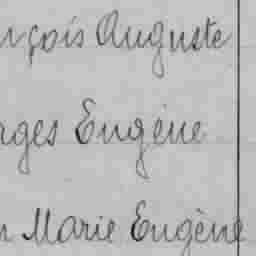 nçois Auguste
rges Eugène
n Marie Eugène